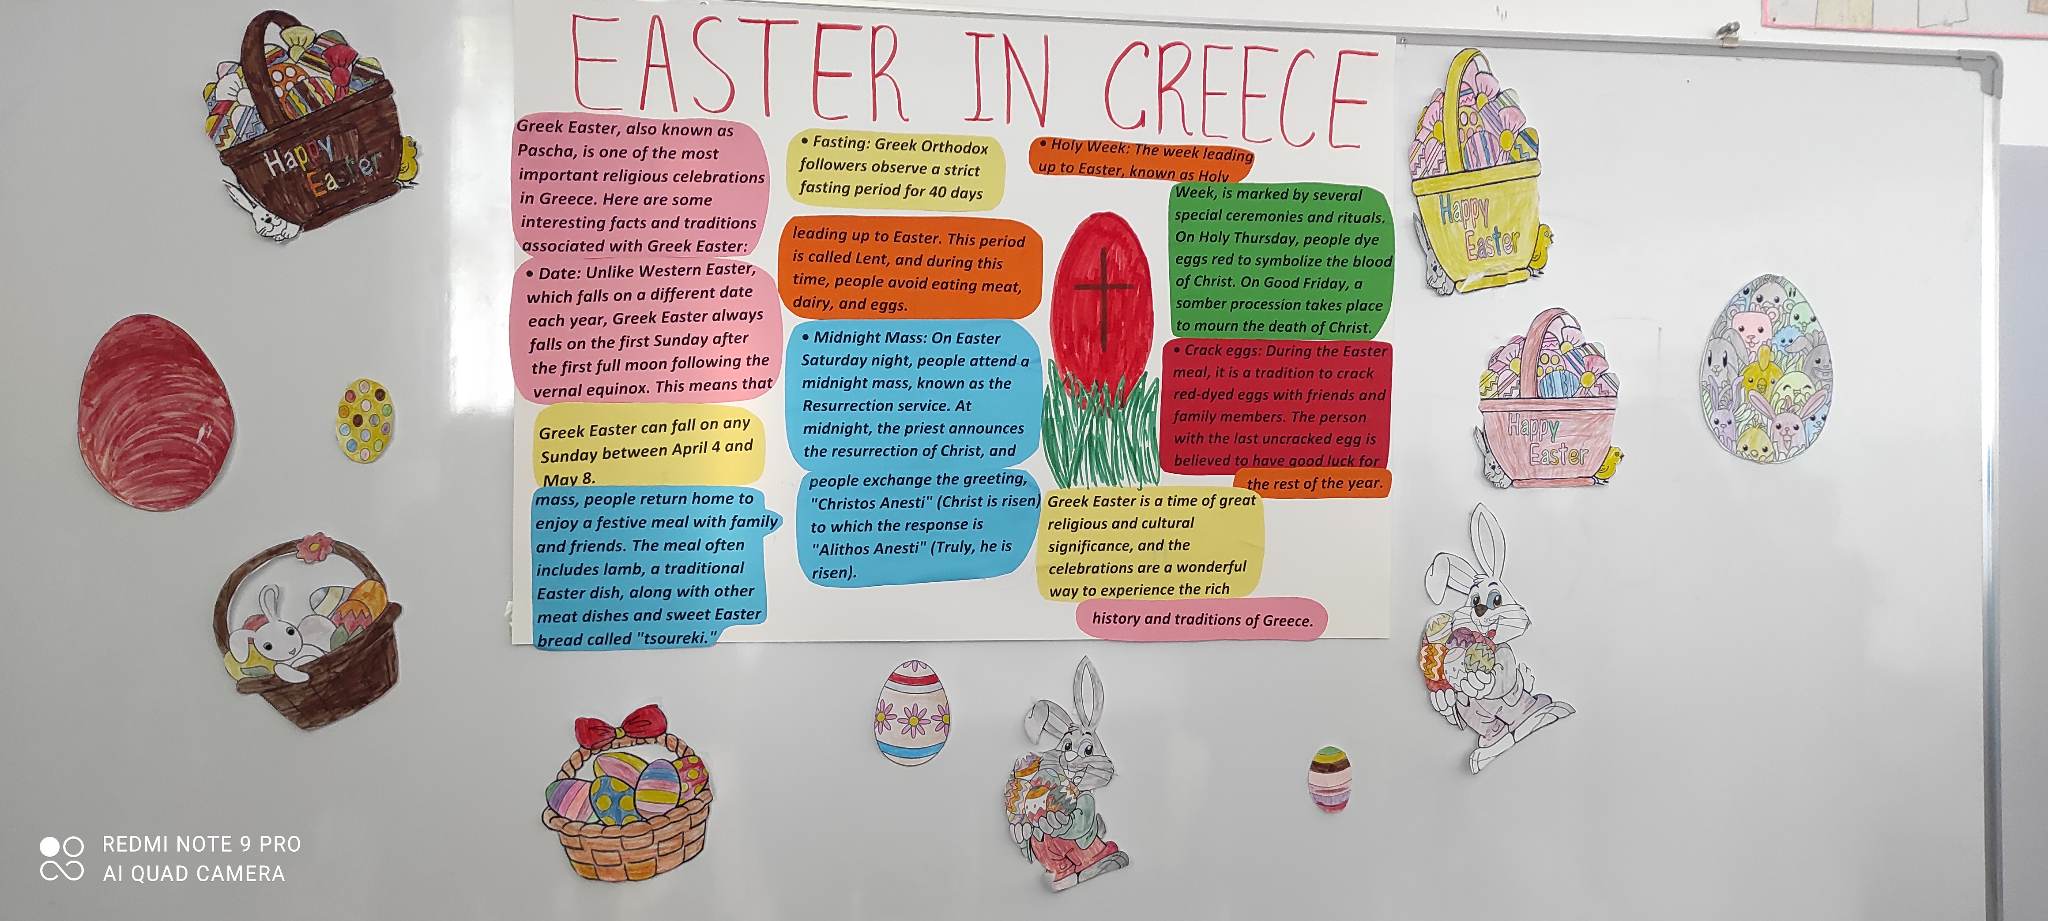 EASTER IN GREECE
Greek Easter, also known as
Pascha, is one of the most
important religious celebrations
in Greece. Here are some
interesting facts and traditions
associated with Greek Easter:
• Date: Unlike Western Easter,
which falls on a different date
each year, Greek Easter always
falls on the first Sunday after
the first full moon following the
vernal equinox. This means that
Greek Easter can fall on any
Sunday between April 4 and
May 8.
mass, people return home to
enjoy a festive meal with family
and friends. The meal often
includes lamb, a traditional
Easter dish, along with other
meat dishes and sweet Easter
bread called "tsoureki."
• Fasting: Greek Orthodox
followers observe a strict
fasting period for 40 days
leading up to Easter. This period
is called Lent, and during this
time, people avoid eating meat,
dairy, and eggs.
• Midnight Mass: On Easter
Saturday night, people attend a
midnight mass, known as the
Resurrection service. At
midnight, the priest announces
the resurrection of Christ, and
people exchange the greeting,
"Christos Anesti" (Christ is risen)
to which the response is
"Alithos Anesti" (Truly, he is
risen).
• Holy Week: The week leading
up to Easter, known as Holy
Week, is marked by several
special ceremonies and rituals.
On Holy Thursday, people dye
eggs red to symbolize the blood
of Christ. On Good Friday, a
somber procession takes place
to mourn the death of Christ.
• Crack eggs: During the Easter
meal, it is a tradition to crack
red-dyed eggs with friends and
family members. The person
with the last uncracked egg is
believed to have good luck for
the rest of the year.
Greek Easter is a time of great
religious and cultural
significance, and the
celebrations are a wonderful
way to experience the rich
history and traditions of Greece.
Happy
Easter
Happy
Easter
Happy
Easter
REDMI NOTE 9 PRO
AI QUAD CAMERA